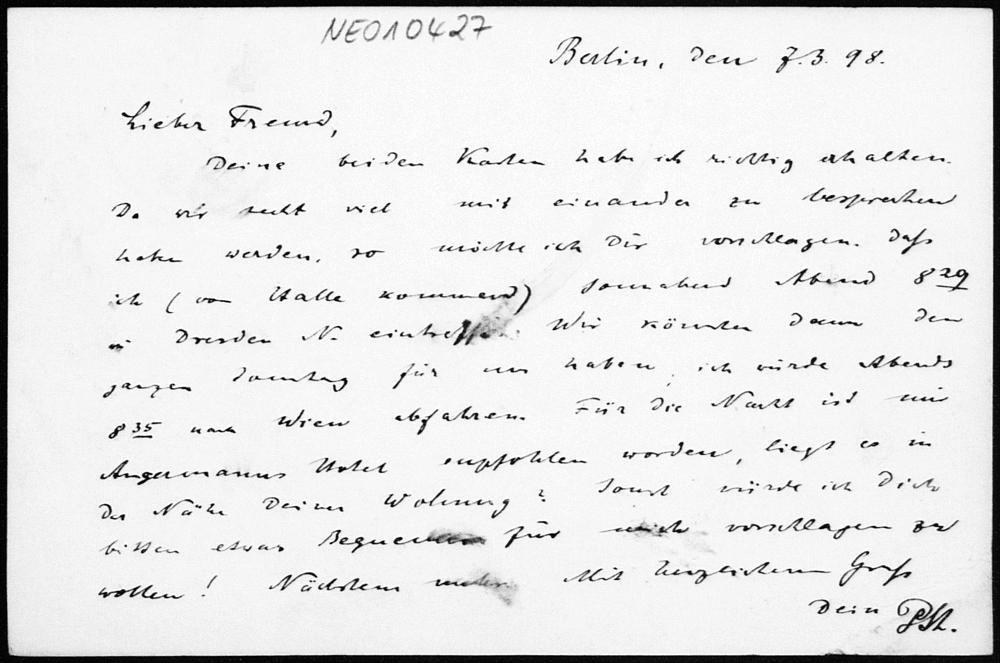 NEO10427
Berlin, den 7.3.98.
Lieber Freund,
Deine beiden Karten habe ich richtig erhalten.
Da wir recht viel mit einander zu besprechen
haben werden, so möchte ich Dir vorschlagen, daß
ich (von Halle kommend) Sonnabend Abend 8 29
in Dresden N. eintreffe. Wir könnten dann den
ganzen Sonntag für uns haben, ich würde Abends
8 35 nach Wien abfahren. Für die Nacht ist mir
Angermanns Hotel empfohlen worden, liegt es in
der Nähe Deiner Wohnung? Sonst würde ich Dich
bitten etwas Bequemes für mich vorschlagen zu
wollen! Nächstens mehr. Mit herzlichem Gruß
Dein PSt.